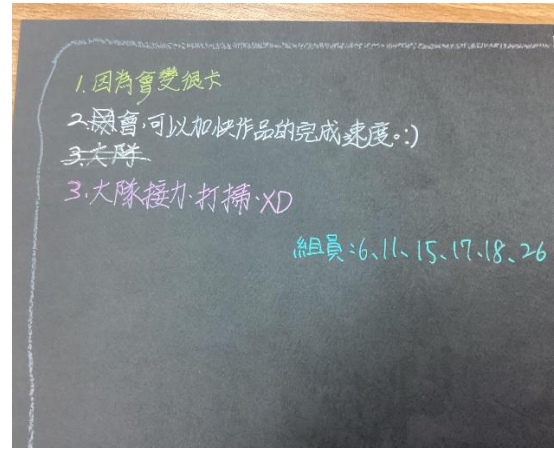 1.因為會變很卡
2.會,可以加快作品的完成速度。:)
3.大隊
3.大隊接力、打掃、XD
組員:6、11、15、17、18、26